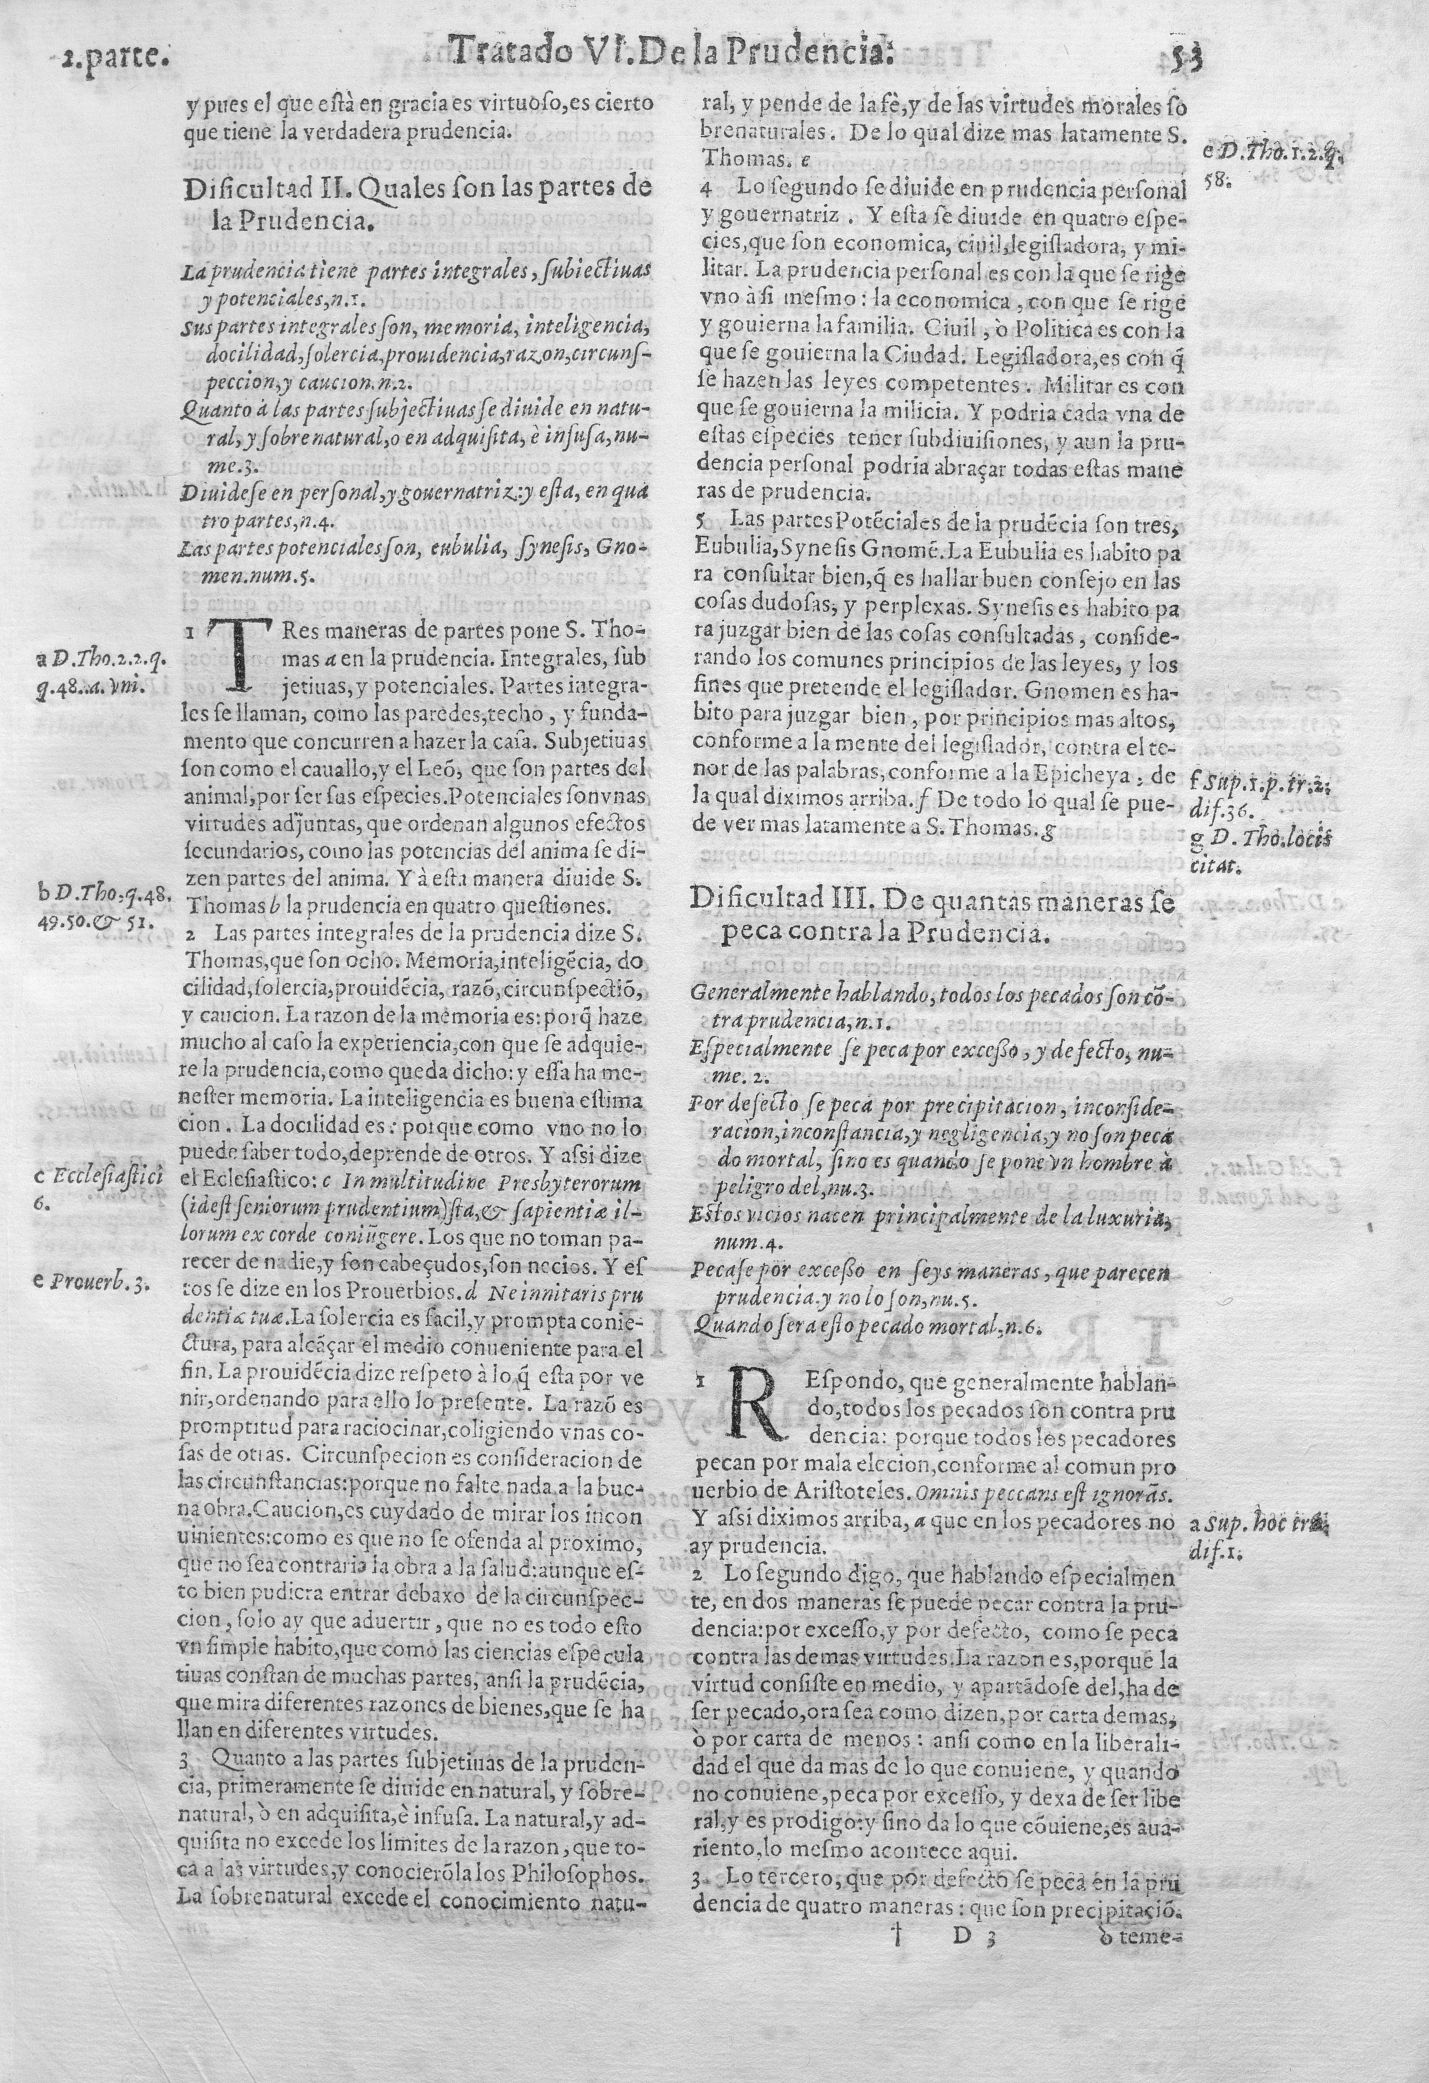 2.parte.
Tratado VI. De la Prudencia.
53
y pues el que eſtà en gracia es virtuoſo, es cierto
que tiene la verdadera prudencia.
Dificultad II. Quales ſon las partes de
la Prudencia.
La prudencia tiene partes integrales, ſubiectiuas
y potenciales, n.1.
Sus partes integrales ſon, memoria, inteligencia,
docilidad, ſolercia, prouidencia, razon, circunſ-
peccion, y caucion. n.2.
Quanto à las partes ſubjectiuas ſe diuide en natu-
ral, y ſobrenatural, o en adquiſita, è infuſa, nu-
me.3.
Diuideſe en perſonal, y gouernatriz: y eſta, en qua
tro partes, n.4.
Las partes potenciales ſon, eubulia, ſyneſis, Gno-
men. num.5.
1 TRes maneras de partes pone S. Tho-
mas a en la prudencia. Integrales, ſub
jetiuas, y potenciales. Partes integra-
les ſe llaman, como las paredes, techo, y funda-
mento que concurren a hazer la caſa. Subjetiuas
ſon como el cauallo, y el Leõ, que ſon partes del
animal, por ſer ſus eſpecies. Potenciales ſon vnas
virtudes adjuntas, que ordenan algunos efectos
ſecundarios, como las potencias del anima ſe di-
zen partes del anima. Y à eſta manera diuide S.
Thomas b la prudencia en quatro queſtiones.
2 Las partes integrales de la prudencia dize S.
Thomas, que ſon ocho. Memoria, inteligẽcia, do
cilidad, ſolercia, prouidẽcia, razõ, circunſpectiõ,
y caucion. La razon de la memoria es: porq̃ haze
mucho al caſo la experiencia, con que ſe adquie-
re la prudencia, como queda dicho: y eſſa ha me-
neſter memoria. La inteligencia es buena eſtima
cion. La docilidad es: porque como vno no lo
puede ſaber todo, deprende de otros. Y aſsi dize
el Ecleſiaſtico: c In multitudine Presbyterorum
(ideſt ſeniorum prudentium) ſta, & ſapientiæ il-
lorum ex corde coniũgere. Los que no toman pa-
recer de nadie, y ſon cabeçudos, ſon necios. Y eſ
tos ſe dize en los Prouerbios. d Ne innitaris pru
dentiæ tuæ. La ſolercia es facil, y prompta conie-
ctura, para alcãçar el medio conueniente para el
fin. La prouidẽcia dize reſpeto à lo q̃ eſta por ve
nir, ordenando para ello lo preſente. La razõ es
promptitud para raciocinar, coligiendo vnas co-
ſas de otras. Circunſpecion es conſideracion de
las circunſtancias: porque no falte nada a la bue-
na obra. Caucion, es cuydado de mirar los incon
uinientes: como es que no ſe ofenda al proximo,
que no ſea contraria la obra a la ſalud: aunque eſ-
to bien pudiera entrar debaxo de la circunſpec-
cion, ſolo ay que aduertir, que no es todo eſto
vn ſimple habito, que como las ciencias eſpecula
tiuas conſtan de muchas partes, anſi la prudẽcia,
que mira diferentes razones de bienes, que ſe ha
llan en diferentes virtudes.
3 Quanto a las partes ſubjetiuas de la pruden-
cia, primeramente ſe diuide en natural, y ſobre-
natural, ò en adquiſita, è infuſa. La natural, y ad-
quiſita no excede los limites de la razon, que to-
ca a las virtudes, y conocierõla los Philoſophos.
La ſobrenatural excede el conocimiento natu-
a D.Tho.2.2.q.
q.48..a. vni.
b D.Tho.q.48.
49.50.& 51.
c Eccleſiaſtici
6.
e Prouerb. 3.
ral, y pende de la fè, y de las virtudes morales ſo
brenaturales. De lo qual dize mas latamente S.
Thomas. e
4 Lo ſegundo ſe diuide en prudencia perſonal
y gouernatriz. Y eſta ſe diuide en quatro eſpe-
cies, que ſon economica, ciuil, legiſladora, y mi-
litar. La prudencia perſonal es con la que ſe rige
vno à ſi meſmo: la economica, con que ſe rige
y gouierna la familia. Ciuil, ò Politica es con la
que ſe gouierna la Ciudad. Legiſladora, es con q̃
ſe hazen las leyes competentes. Militar es con
que ſe gouierna la milicia. Y podria cada vna de
eſtas eſpecies tener ſubdiuiſiones, y aun la pru-
dencia perſonal podria abraçar todas eſtas mane
ras de prudencia.
5 Las partes Potẽciales de la prudẽcia ſon tres,
Eubulia, Syneſis Gnomẽ. La Eubulia es habito pa
ra conſultar bien, q̃ es hallar buen conſejo en las
coſas dudoſas, y perplexas. Syneſis es habito pa
ra juzgar bien de las coſas conſultadas, conſide-
rando los comunes principios de las leyes, y los
fines que pretende el legiſlador. Gnomen es ha-
bito para juzgar bien, por principios mas altos,
conforme a la mente del legiſlador, contra el te-
nor de las palabras, conforme a la Epicheya: de
la qual diximos arriba. f De todo lo qual ſe pue-
de ver mas latamente a S. Thomas. g
Dificultad III. De quantas maneras ſe
peca contra la Prudencia.
Generalmente hablando, todos los pecados ſon cõ-
tra prudencia, n.1.
Eſpecialmente ſe peca por exceſſo, y defecto, nu-
me. 2.
Por defecto ſe peca por precipitacion, inconſide-
racion, inconſtancia, y negligencia, y no ſon peca
do mortal, ſino es quando ſe pone vn hombre à
peligro del, nu.3.
Eſtos vicios nacen principalmente de la luxuria,
num.4.
Pecaſe por exceſſo en ſeys maneras, que parecen
prudencia, y no lo ſon, nu.5.
Quando ſera eſto pecado mortal, n.6.
1 REſpondo, que generalmente hablan-
do, todos los pecados ſon contra pru
dencia: porque todos los pecadores
pecan por mala elecion, conforme al comun pro
uerbio de Ariſtoteles. Omnis peccans eſt ignorãs.
Y aſsi diximos arriba, a que en los pecadores no
ay prudencia.
2 Lo ſegundo digo, que hablando eſpecialmen
te, en dos maneras ſe puede pecar contra la pru-
dencia: por exceſſo, y por defecto, como ſe peca
contra las demas virtudes. La razon es, porque la
virtud conſiſte en medio, y apartãdoſe del, ha de
ſer pecado, ora ſea como dizen, por carta de mas,
ò por carta de menos: anſi como en la liberali-
dad el que da mas de lo que conuiene, y quando
no conuiene, peca por exceſſo, y dexa de ſer libe
ral, y es prodigo: y ſino da lo que cõuiene, es aua-
riento, lo meſmo acontece aqui.
3 Lo tercero, que por defecto ſe peca en la pru
dencia de quatro maneras: que ſon precipitaciõ,
† D 3 ò teme-
e D.Tho.1.2.q.
58.
f Sup.1.p.tr.2.
dif.36.
g D. Tho. locis
citat.
a Sup. hoc tra.
dif.1.